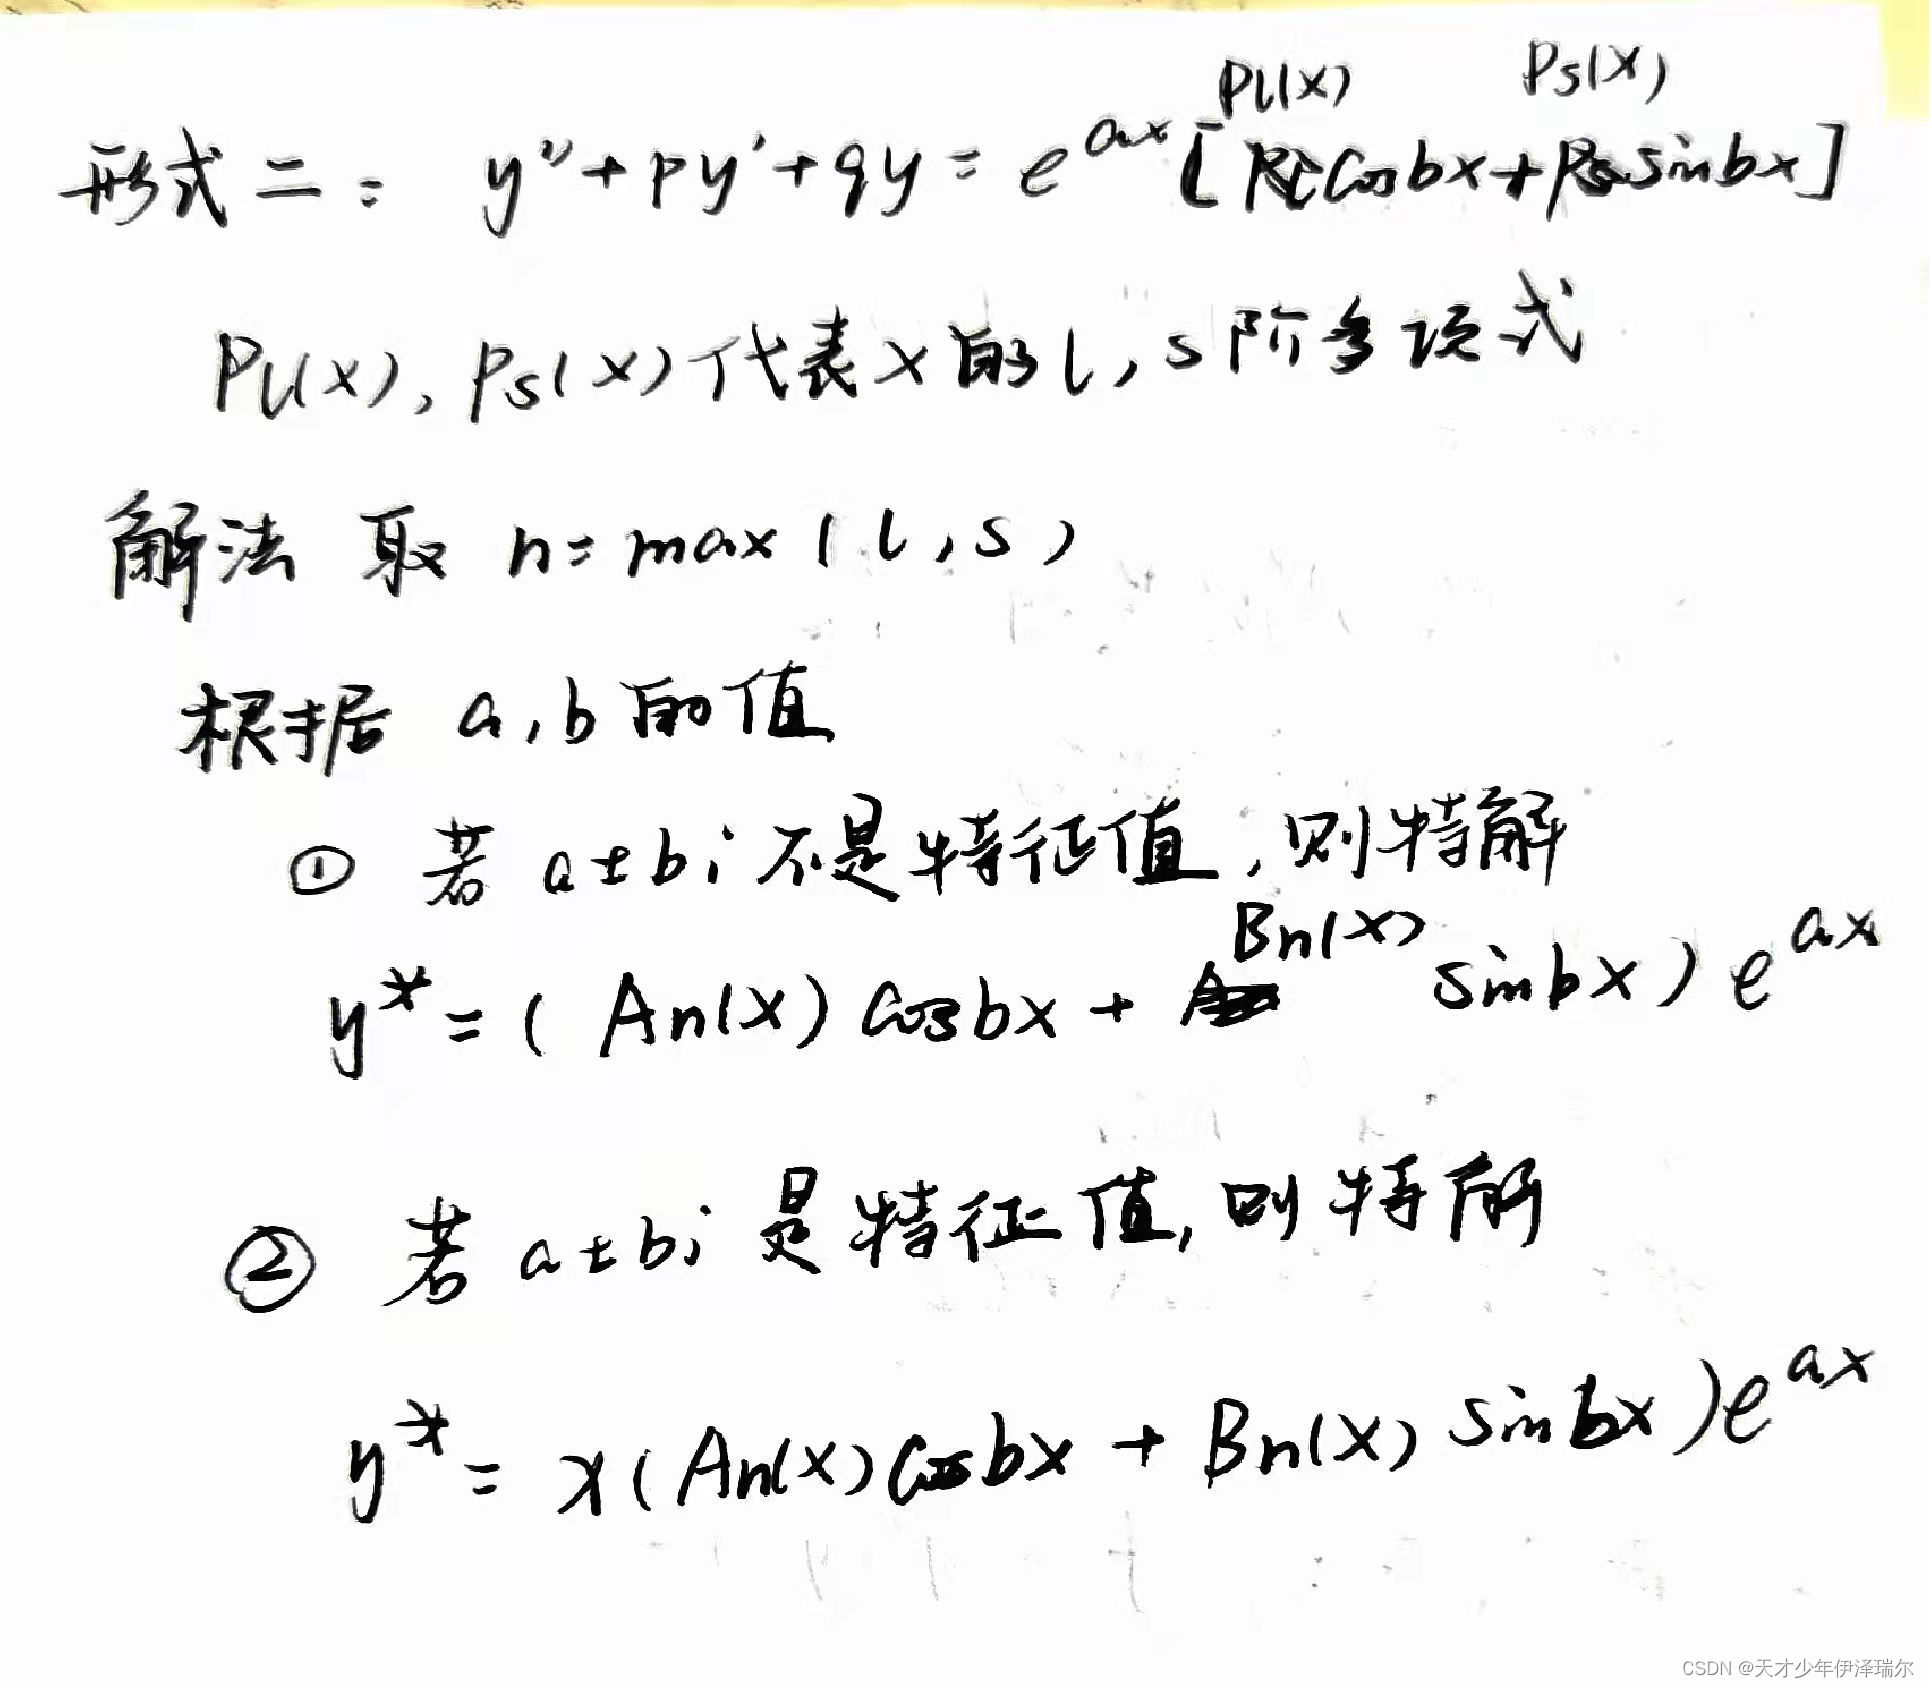 Pl(x) Ps(x)
形式二: y''+py'+qy=e^{ax}[Pl cosbx+Ps sinbx]
Pl(x), Ps(x)代表x的l,s阶多项式
解法 取 n=max(l,s)
根据 a,b的值
① 若 a±bi不是特征值,则特解
Bn(x)
y*=(An(x)cosbx+ sinbx)e^{ax}
② 若 a±bi 是特征值,则特解
y*=x(An(x)cosbx+Bn(x)sinbx)e^{ax}
CSDN @天才少年伊泽瑞尔